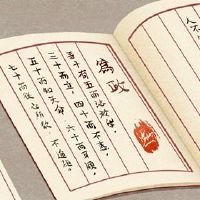 人不
為政
吾十有五而志於學，
三十而立，四十而不惑，
五十而知天命，六十而耳順，
七十而從心所欲，不逾